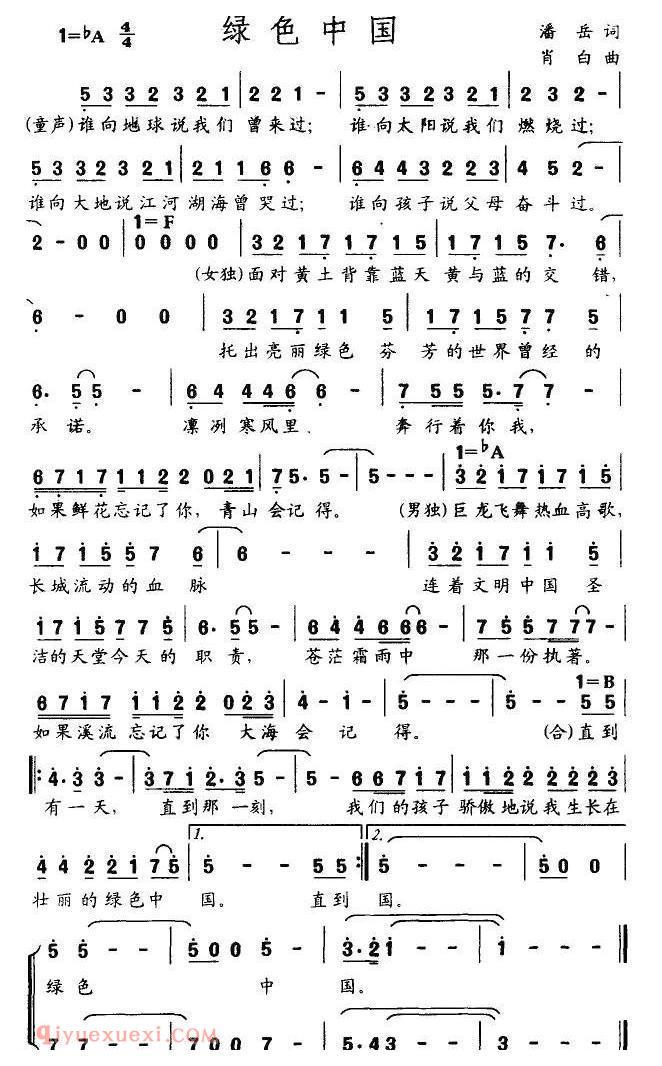 1=♭A 4/4 绿色中国 潘岳词
肖白曲
5 3 3 2 3 2 1 | 2 2 1 - | 5 3 3 2 3 2 1 | 2 3 2 - |
(童声)谁向地球说我们 曾来过; 谁向太阳说我们 燃烧过;
5 3 3 2 3 2 1 | 2 1 1 6 6 | 6 4 4 3 2 2 1 | 4 5 2 - |
谁向大地说江河湖海曾哭过; 谁向孩子说父母奋斗过。
1=F
2 - 0 0 | 0 0 0 0 | 3 2 1 7 1 7 1 5 | 1 7 1 5 5 7. 6 |
(女独)面对黄土背靠蓝天 黄与蓝的交 错,
6 - 0 0 | 3 2 1 7 1 1 5 | 1 7 1 5 7 7 5 |
托出亮丽绿色 芬 芳的世界曾经的
6. 5 5 - | 6 4 4 4 6 6 - | 7 5 5 5. 7 7 - |
承 诺。 凛冽寒风里、 奔行着你我,
1=♭A
6 7 1 7 1 1 2 2 0 2 1 | 7 5. 5 - | 5 - - - | 3 2 1 7 1 7 1 5 |
如果鲜花忘记了你,青山会记得。 (男独)巨龙飞舞热血高歌,
1 7 1 5 5 7 6 | 6 - - - | 3 2 1 7 1 1 5 |
长城流动的血 脉 连着文明中国 圣
1 7 1 5 7 7 5 | 6. 5 5 - | 6 4 4 6 6 6 - | 7 5 5 5 7 7 - |
洁的天堂今天的 职责, 苍茫霜雨中 那一份执著。
1=B
6 7 1 7 1 1 2 2 0 2 3 | 4 - 1 - | 5 - - - | 5 - - 5 5 |
如果溪流 忘记了你 大海 会 记 得。 (合)直到
4. 3 3 - | 3 7 1 2. 3 5 - | 5 - 6 6 7 1 7 | 1 1 2 2 2 2 2 3 |
有一天, 直到那一刻, 我们的孩子骄傲地说我生长在
1. 2.
4 4 2 2 1 7 5 | 5 - - 5 5 :| 5 - - - | 5 0 0 0 |
壮丽的绿色中 国。 直到 国。
5 5 - - | 5 0 0 5 - | 3. 2 1 - - | 1 - - - |
绿色 中 国。
qiyuexuexi.COM
7 7 - - | 7 0 0 7 - | 5. 4 3 - - | 5 - - - |